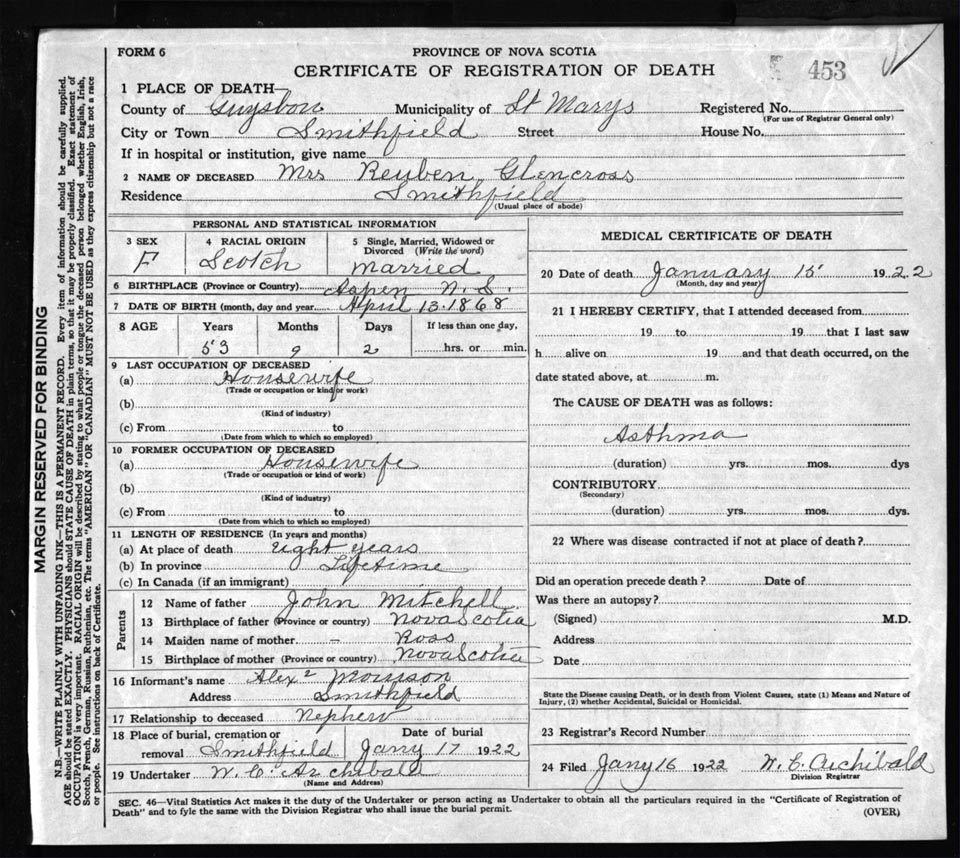 FORM 6
PROVINCE OF NOVA SCOTIA
CERTIFICATE OF REGISTRATION OF DEATH
453
1 PLACE OF DEATH—
County of Guysboro Municipality of St Marys Registered No.
(For use of Registrar General only)
City or Town Smithfield Street House No.
If in hospital or institution, give name
2 NAME OF DECEASED Mrs Reuben Glencross
Residence Smithfield
(Usual place of abode)
PERSONAL AND STATISTICAL INFORMATION
3 SEX F
4 RACIAL ORIGIN Scotch
5 Single, Married, Widowed or Divorced (Write the word) married
6 BIRTHPLACE (Province or Country) Aspen N.S.
7 DATE OF BIRTH (month, day and year) April 13. 1868
8 AGE Years Months Days If less than one day,
53 9 2 hrs. or min.
9 LAST OCCUPATION OF DECEASED
(a) Housewife
(Trade or occupation or kind or work)
(b)
(Kind of industry)
(c) From to
(Date from which to which so employed)
10 FORMER OCCUPATION OF DECEASED
(a) Housewife
(Trade or occupation or kind of work)
(b)
(Kind of industry)
(c) From to
(Date from which to which so employed)
11 LENGTH OF RESIDENCE (In years and months)
(a) At place of death eight years
(b) In province Lifetime
(c) In Canada (if an immigrant)
Parents
12 Name of father John Mitchell
13 Birthplace of father (Province or country) Nova Scotia
14 Maiden name of mother – Ross
15 Birthplace of mother (Province or country) Nova Scotia
16 Informant's name Alexr Morrison
Address Smithfield
17 Relationship to deceased Nephew
18 Place of burial, cremation or Date of burial
removal Smithfield Jany 17 1922
19 Undertaker W. C. Archibald
(Name and Address)
MEDICAL CERTIFICATE OF DEATH
20 Date of death January 15 1922
(Month, day and year)
21 I HEREBY CERTIFY, that I attended deceased from
19 to 19 that I last saw
h alive on 19 and that death occurred, on the
date stated above, at m.
The CAUSE OF DEATH was as follows:
Asthma
(duration) yrs. mos. dys
CONTRIBUTORY
(Secondary)
(duration) yrs. mos. dys.
22 Where was disease contracted if not at place of death?
Did an operation precede death? Date of
Was there an autopsy?
(Signed) M.D.
Address
Date
State the Disease causing Death, or in death from Violent Causes, state (1) Means and Nature of
Injury, (2) whether Accidental, Suicidal or Homicidal.
23 Registrar's Record Number
24 Filed Jany 16 1922 W. C. Archibald
Division Registrar
SEC. 46—Vital Statistics Act makes it the duty of the Undertaker or person acting as Undertaker to obtain all the particulars required in the "Certificate of Registration of
Death" and to fyle the same with the Division Registrar who shall issue the burial permit.
(OVER)
MARGIN RESERVED FOR BINDING
N.B.—WRITE PLAINLY WITH UNFADING INK—THIS IS A PERMANENT RECORD. Every item of information should be carefully supplied.
AGE should be stated EXACTLY. PHYSICIANS should STATE CAUSE OF DEATH in plain terms, so that it may be properly classified. Exact statement of
OCCUPATION is very important. RACIAL ORIGIN will be described by stating to what people or tongue the deceased person belonged whether English, Irish,
Scotch, French, German, Russian, Ruthenian, etc. The terms "AMERICAN" OR "CANADIAN" MUST NOT BE USED as they express citizenship but not a race
or people. See instructions on back of Certificate.